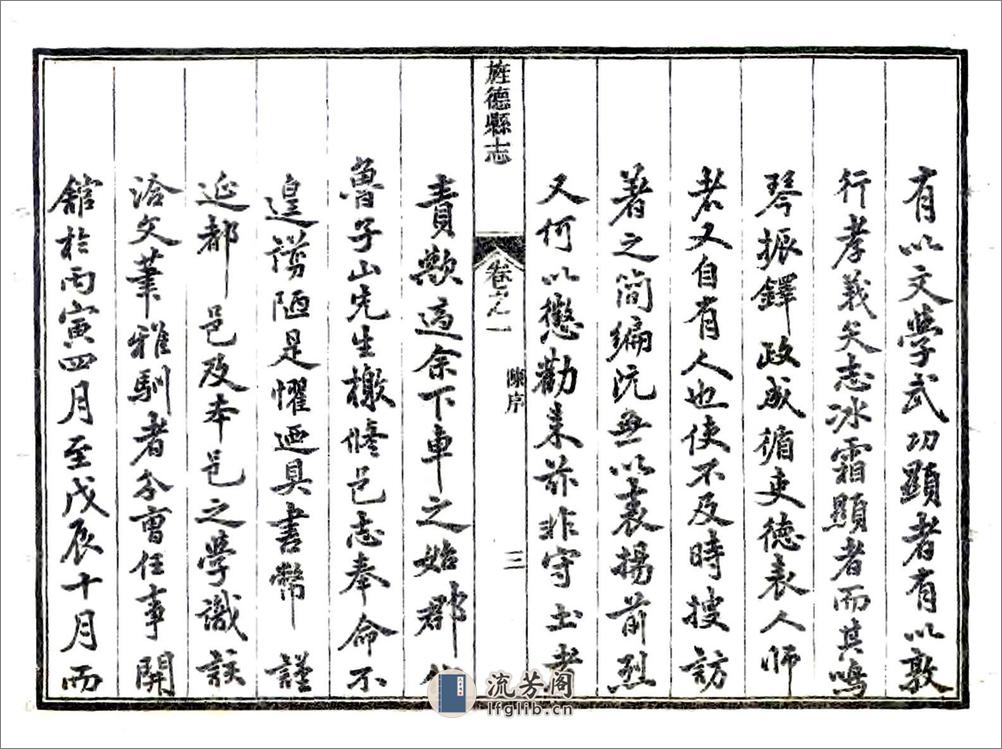 有以文學武功顯者有以敦
行孝義矢志冰霜顯者而其鳴
琴振鐸政成循吏德表人師
者又自有人也使不及時搜訪
著之簡編沅無以表揚前烈
又何以懲勸來茲非守土者
旌德縣志
卷之一
陳序
三
責歟適余下車之始郡
魯子山先生檄修邑志奉命不
遑謭陋是懼迺具書幣謹
延都邑及本邑之學識詼
洽文筆雅馴者分曹任事開
舘於丙寅四月至戊辰十月而
流芳阁
lfglib.cn